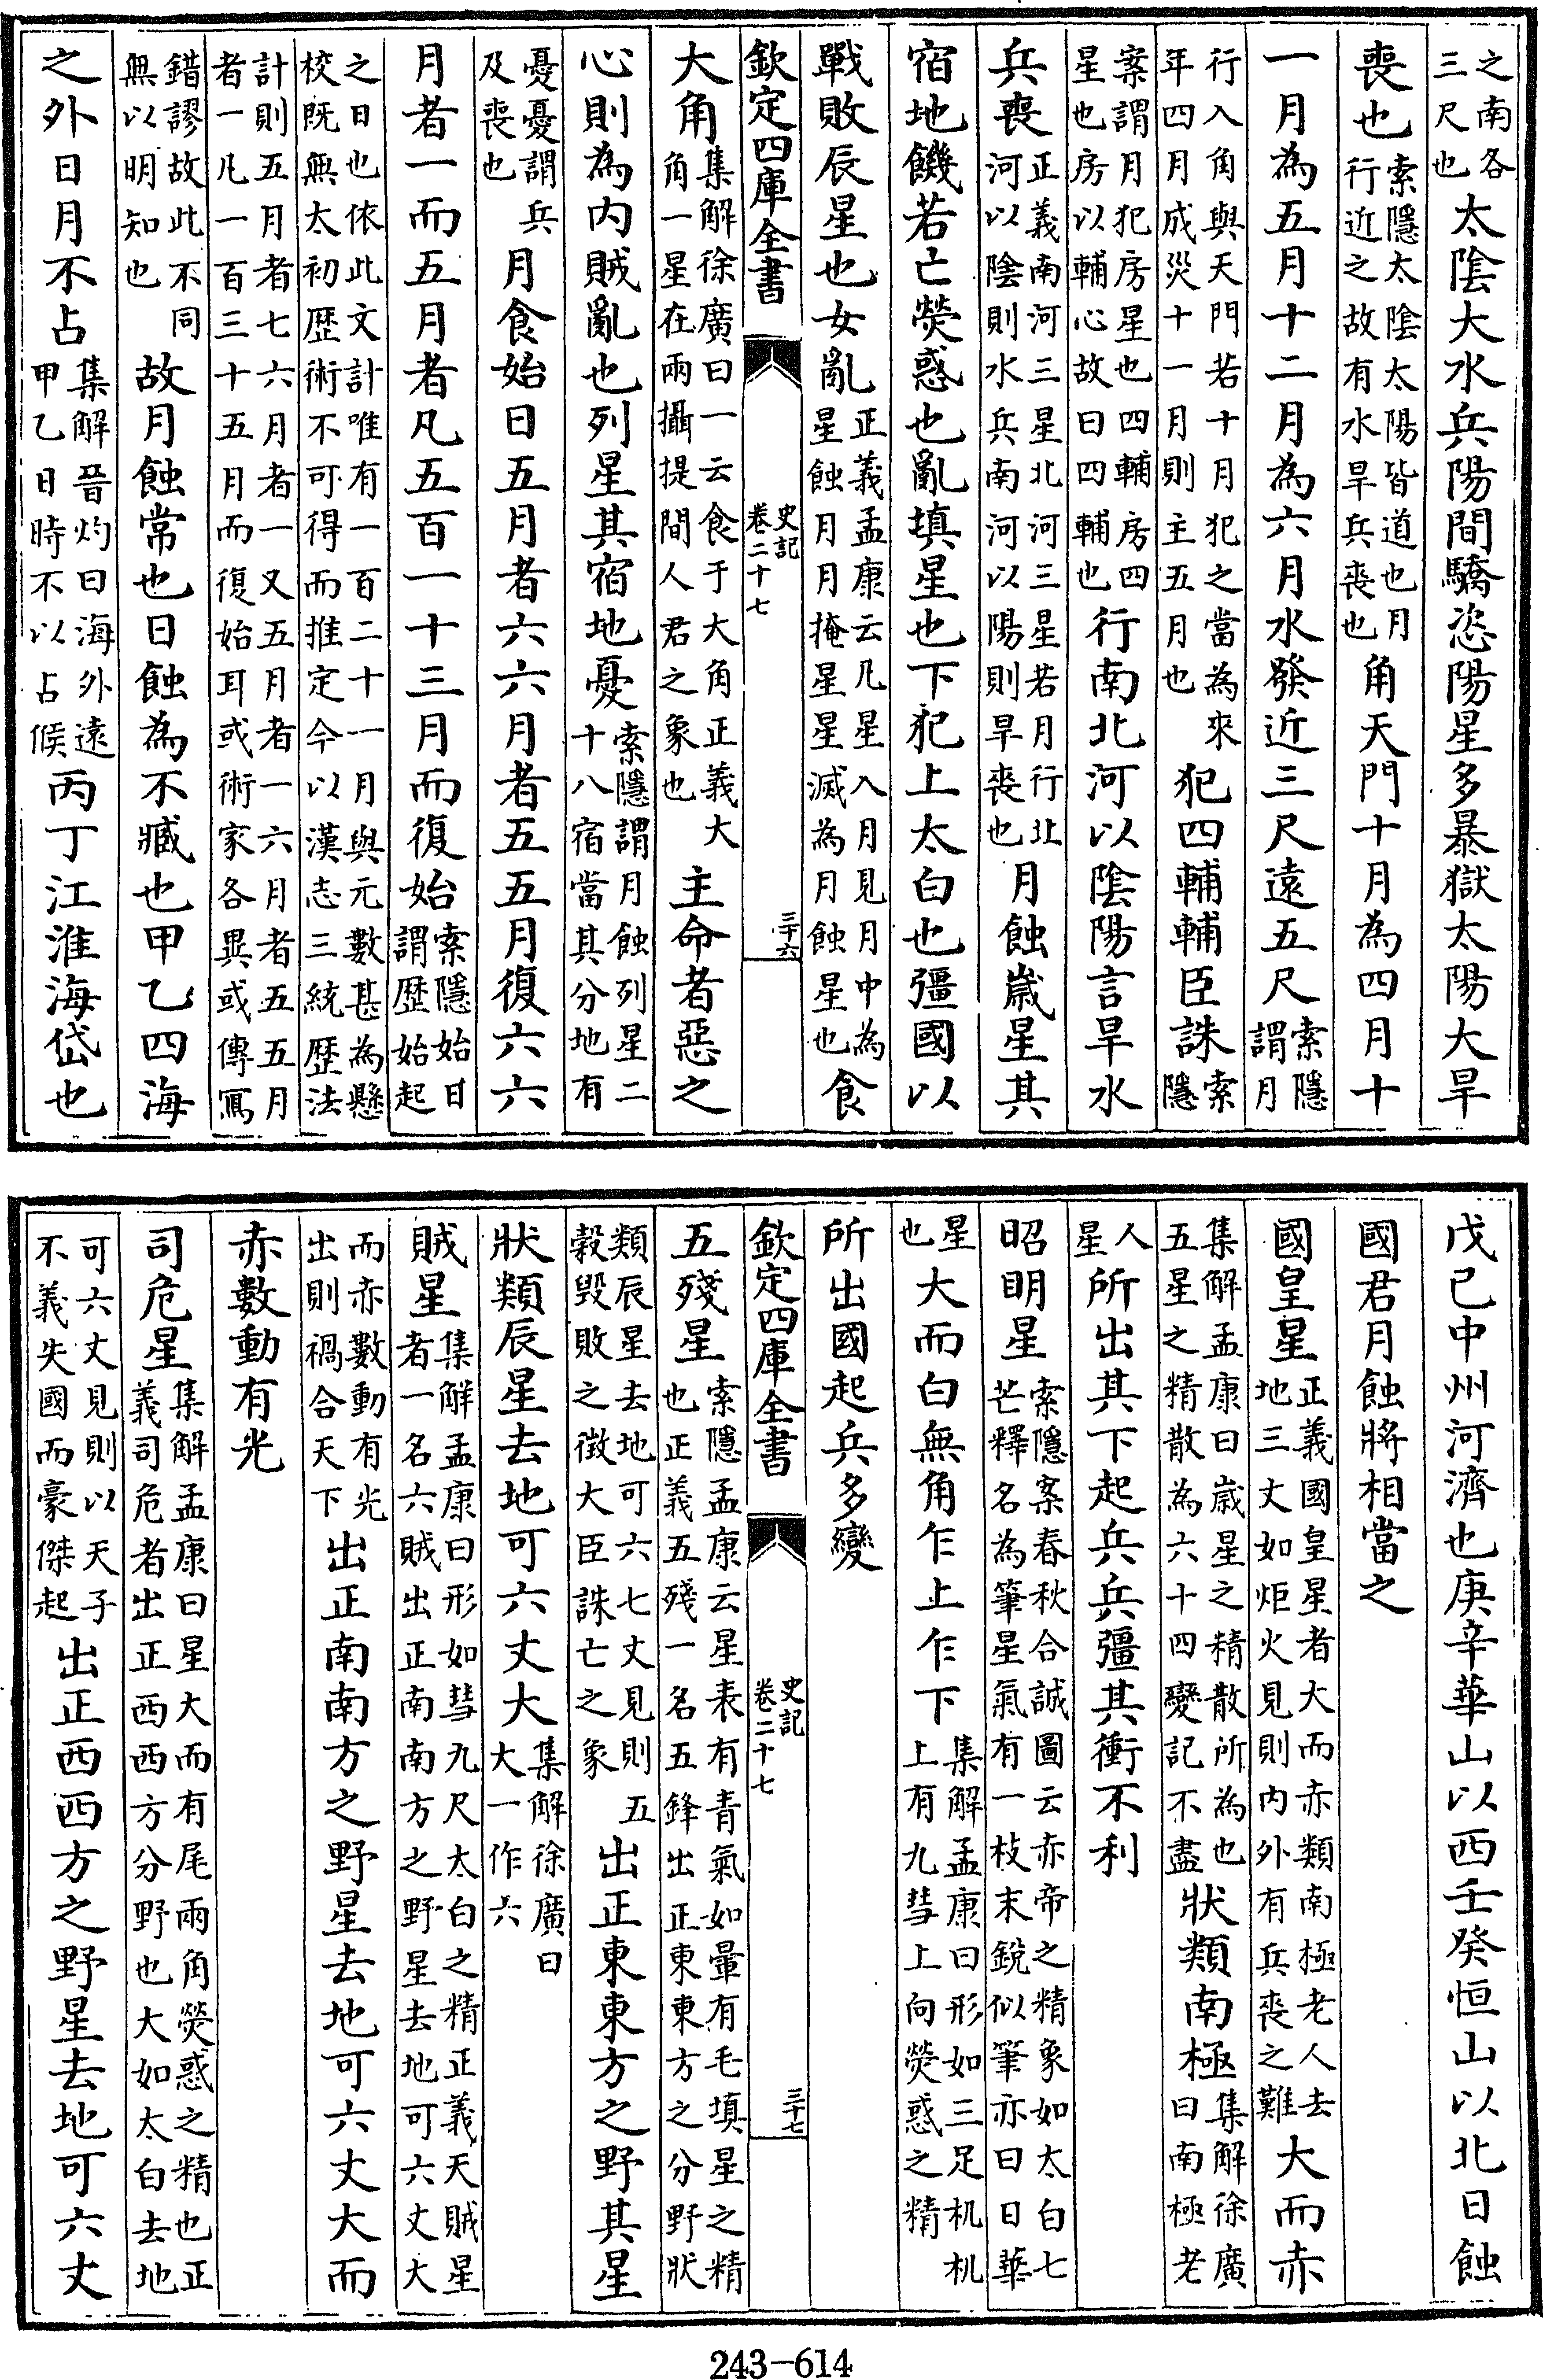 之南各三尺也太陰大水兵陽間驕恣陽星多暴獄太陽大旱
喪也索隱太陰太陽皆道也月行近之故有水旱兵喪也角天門十月為四月十
一月為五月十二月為六月水發近三尺遠五尺索隱謂月
行入角與天門若十月犯之當為來年四月成災十一月則主五月也犯四輔輔臣誅索隱
案謂月犯房星也四輔房四星也房以輔心故曰四輔也行南北河以陰陽言旱水
兵喪正義南河三星北河三星若月行北河以陰則水兵南河以陽則旱喪也月蝕嵗星其
宿地饑若亡熒惑也亂填星也下犯上太白也彊國以
戰敗辰星也女亂正義孟康云凡星入月見月中為星蝕月月掩星星滅為月蝕星也食
欽定四庫全書 史記卷二十七 三十六
大角集解徐廣曰一云食于大角正義大角一星在兩攝提間人君之象也主命者惡之
心則為内賊亂也列星其宿地憂索隱謂月蝕列星二十八宿當其分地有
憂憂謂兵及喪也月食始日五月者六六月者五五月復六六
月者一而五月者凡五百一十三月而復始索隱始日謂歴始起
之日也依此文計唯有一百二十一月與元數甚為懸校既無太初歴術不可得而推定今以漢志三統歴法
計則五月者七六月者一又五月者一六月者五五月者一凡一百三十五月而復始耳或術家各異或傳寫
錯謬故此不同無以明知也故月蝕常也日蝕為不臧也甲乙四海
之外日月不占集解晉灼曰海外遠甲乙日時不以占候丙丁江淮海岱也
戊己中州河濟也庚辛華山以西壬癸恒山以北日蝕
國君月蝕將相當之
國皇星正義國皇星者大而赤類南極老人去地三丈如炬火見則内外有兵喪之難大而赤
集解孟康曰嵗星之精散所為也五星之精散為六十四變記不盡狀類南極集解徐廣曰南極老
人星所出其下起兵兵彊其衝不利
昭明星索隱案春秋合誠圖云赤帝之精象如太白七芒釋名為筆星氣有一枝末銳似筆亦曰日華
星也大而白無角乍上乍下集解孟康曰形如三足机机上有九彗上向熒惑之精
所出國起兵多變
欽定四庫全書 史記卷二十七 三十七
五殘星索隱孟康云星表有青氣如暈有毛填星之精也正義五殘一名五鋒出正東東方之分野狀
類辰星去地可六七丈見則五穀毀敗之徵大臣誅亡之象出正東東方之野其星
狀類辰星去地可六丈大集解徐廣曰大一作六
賊星集解孟康曰形如彗九尺太白之精正義天賊星者一名六賊出正南南方之野星去地可六丈大
而赤數動有光出則禍合天下出正南南方之野星去地可六丈大而
赤數動有光
司危星集解孟康曰星大而有尾兩角熒惑之精也正義司危者出正西西方分野也大如太白去地
可六丈見則以天子不義失國而豪傑起出正西西方之野星去地可六丈
243-614